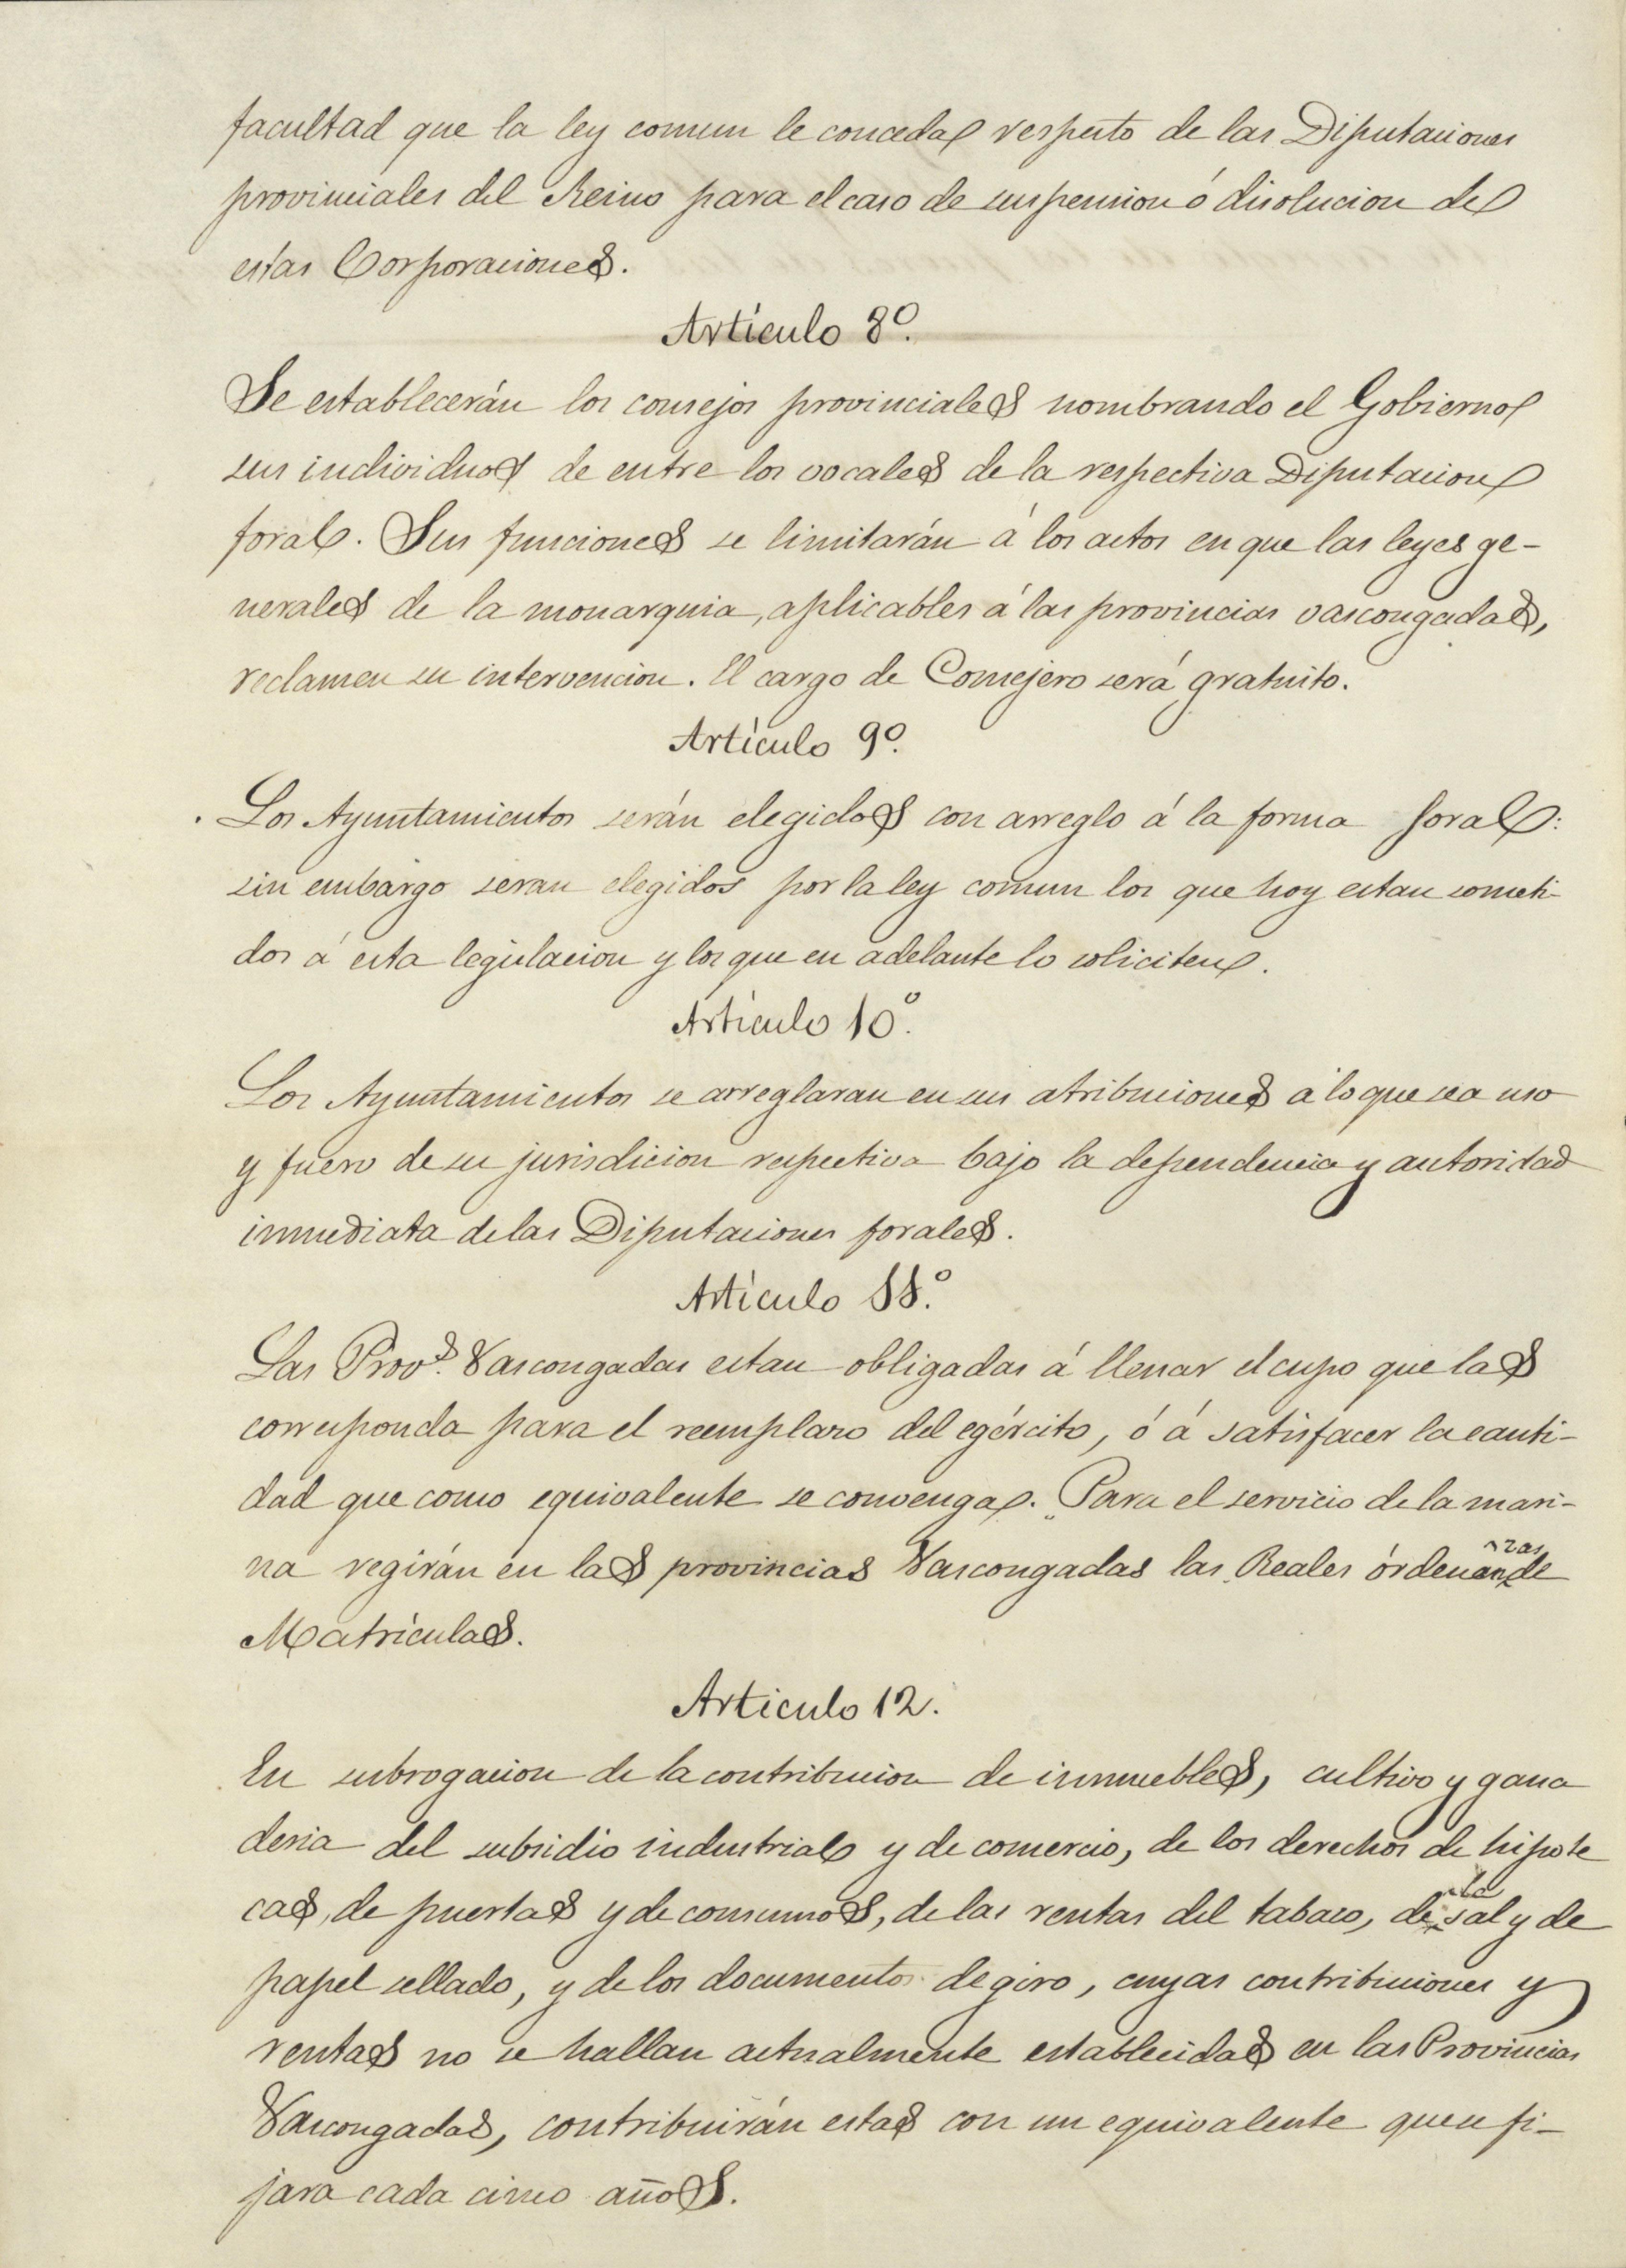 facultad que la ley comun le conceda respecto de las Diputaciones
provinciales del Reino para el caso de suspension ó disolucion de
estas Corporaciones.
Artículo 8º.
Se establecerán los consejos provinciales nombrando el Gobierno
sus individuos de entre los vocales de la respectiva Diputacion
foral. Sus funciones se limitarán á los actos en que las leyes ge-
nerales de la monarquia, aplicables á las provincias vascongadas,
reclamen su intervencion. El cargo de Consejero será gratuito.
Artículo 9º.
Los Ayuntamientos serán elegidos con arreglo á la forma foral:
sin embargo seran elegidos por la ley comun los que hoy estan someti-
dos á esta legislacion y los que en adelante lo soliciten.
Artículo 10º.
Los Ayuntamientos se arreglaran en sus atribuciones á lo que sea uso
y fuero de su jurisdicion respectiva bajo la dependencia y autoridad
inmediata de las Diputaciones forales.
Artículo 11.º
Las Provs. Vascongadas estan obligadas á llenar el cupo que las
corresponda para el reemplazo del egército, ó á satisfacer la canti-
dad que como equivalente se convenga. Para el servicio de la mari-
na regirán en las provincias Vascongadas las Reales órdenanzas de
Matrículas.
Articulo 12.
En subrogacion de la contribucion de inmuebles, cultivo y gana
deria del subsidio industrial y de comercio, de los derechos de hipote
cas, de puertas y de consumos, de las rentas del tabaco, de la sal y de
papel sellado, y de los documentos de giro, cuyas contribuciones y
rentas no se hallan actualmente establecidas en las Provincias
Vascongadas, contribuirán estas con un equivalente que se fi-
jara cada cinco años.